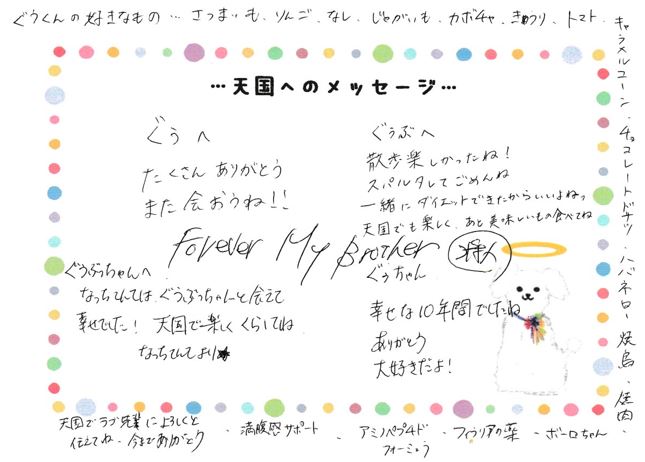 ぐうくんの好きなもの … さつまいも、りんご、なし、じゃがいも、カボチャ、きゅうり、トマト、
キャラメルコーン、チョコレートドーナツ、ハバネロー、焼鳥、焼肉、
…天国へのメッセージ…
ぐぅ へ
たくさん ありがとう
また 会おうね!!
ぐぅぶへ
散歩楽しかったね!
スパルタしてごめんね
一緒にダイエットできたからいいよねっ
天国でも楽しく、あと美味しいもの食べてね
Forever My Brother
ぐうぶっちゃんへ
なっちてんては、ぐうぶっちゃんと会えて
幸せでした! 天国で楽しく くらしてね
なっちてんてより★
ぐぅちゃん
幸せな10年間でしたね
ありがとう
大好きだよ!
天国でラブ先輩によろしくと
伝えてね、今までありがとう
・満腹感サポート
・アミノペプチド
フォーミュラ
・フィラリアの薬
・ボーロちゃん